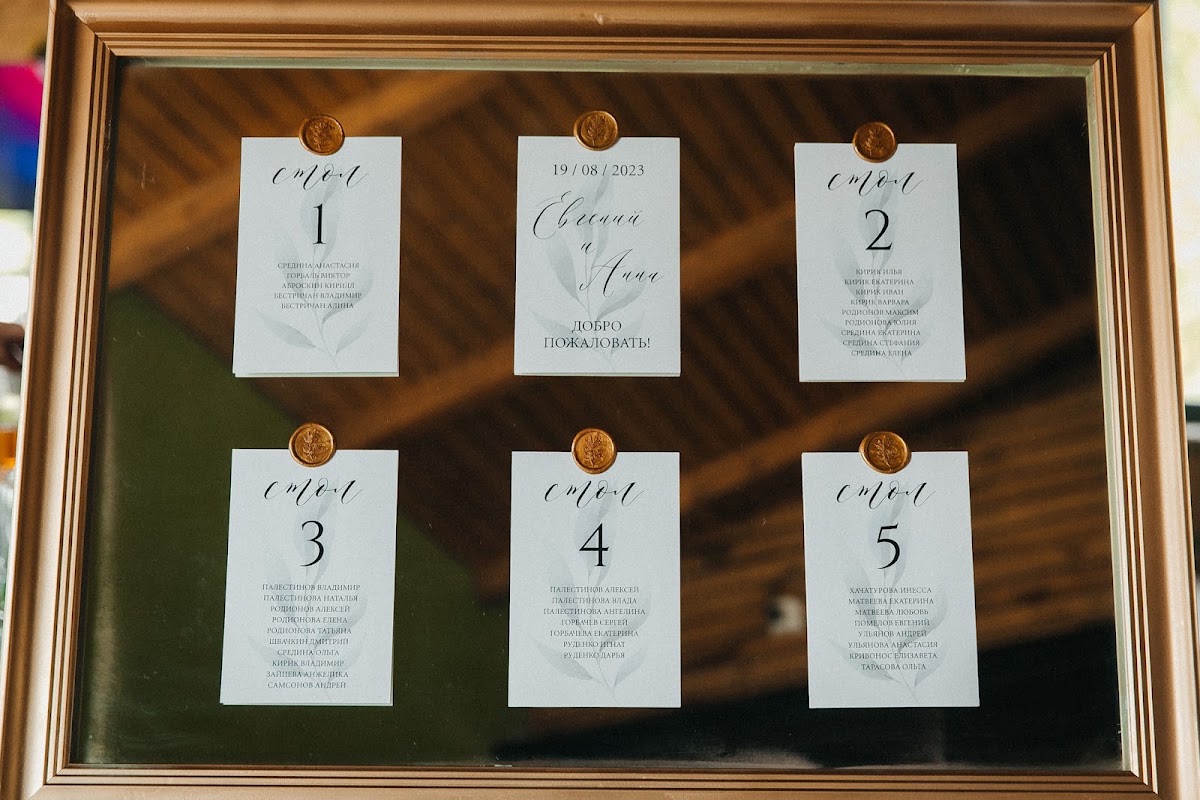 стол
1
СРЕДИНА АНАСТАСИЯ
ГОРБАЛЬ ВИКТОР
АВРОСКИН КИРИЛЛ
БЕСТРИЧАН ВЛАДИМИР
БЕСТРИЧАН АЛИНА
19 / 08 / 2023
Евгений
и
Анна
ДОБРО
ПОЖАЛОВАТЬ!
стол
2
КИРИК ИЛЬЯ
КИРИК ЕКАТЕРИНА
КИРИК ИВАН
КИРИК ВАРВАРА
РОДИОНОВ МАКСИМ
РОДИОНОВА ЮЛИЯ
СРЕДИНА ЕКАТЕРИНА
СРЕДИНА СТЕФАНИЯ
СРЕДИНА ЕЛЕНА
стол
3
ПАЛЕСТИНОВ ВЛАДИМИР
ПАЛЕСТИНОВА НАТАЛЬЯ
РОДИОНОВ АЛЕКСЕЙ
РОДИОНОВА ЕЛЕНА
РОДИОНОВА ТАТЬЯНА
ШВАЧКИН ДМИТРИЙ
СРЕДИНА ОЛЬГА
КИРИК ВЛАДИМИР
ЗАЙЦЕВА АНЖЕЛИКА
САМСОНОВ АНДРЕЙ
стол
4
ПАЛЕСТИНОВ АЛЕКСЕЙ
ПАЛЕСТИНОВА ВЛАДА
ПАЛЕСТИНОВА АНГЕЛИНА
ГОРБАЧЕВ СЕРГЕЙ
ГОРБАЧЕВА ЕКАТЕРИНА
РУДЕНКО ИГНАТ
РУДЕНКО ДАРЬЯ
стол
5
ХАЧАТУРОВА ИНЕССА
МАТВЕЕВА ЕКАТЕРИНА
МАТВЕЕВА ЛЮБОВЬ
ПОМЕЛОВ ЕВГЕНИЙ
УЛЬЯНОВ АНДРЕЙ
УЛЬЯНОВА АНАСТАСИЯ
КРИВОНОС ЕЛИЗАВЕТА
ТАРАСОВА ОЛЬГА